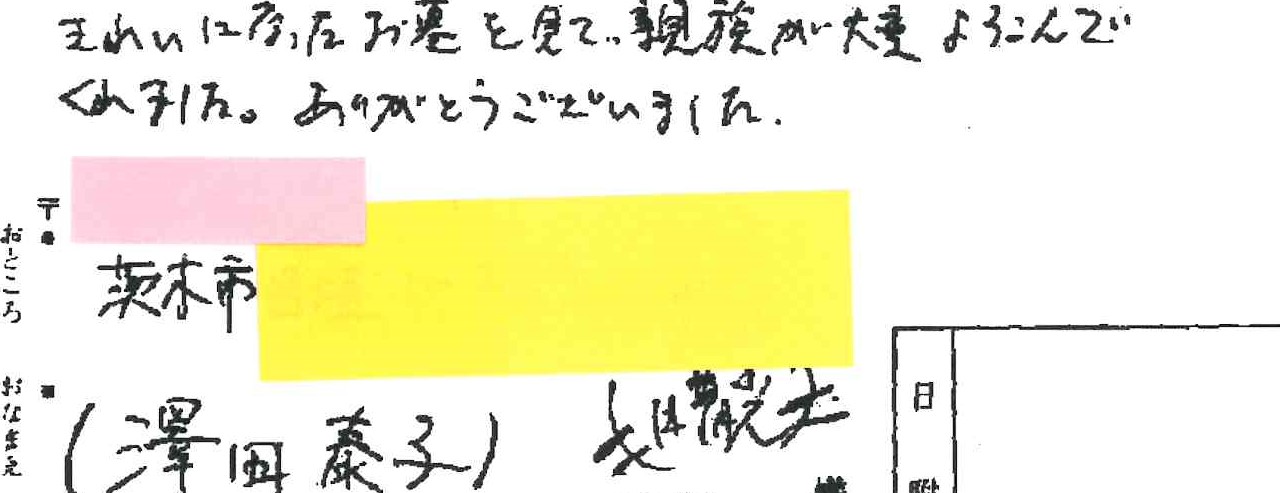 きれいになったお墓を見て、親族が大量よろこんで
くれました。ありがとうございました.
〒
おところ
茨木市
おなまえ
(澤田泰子)
日